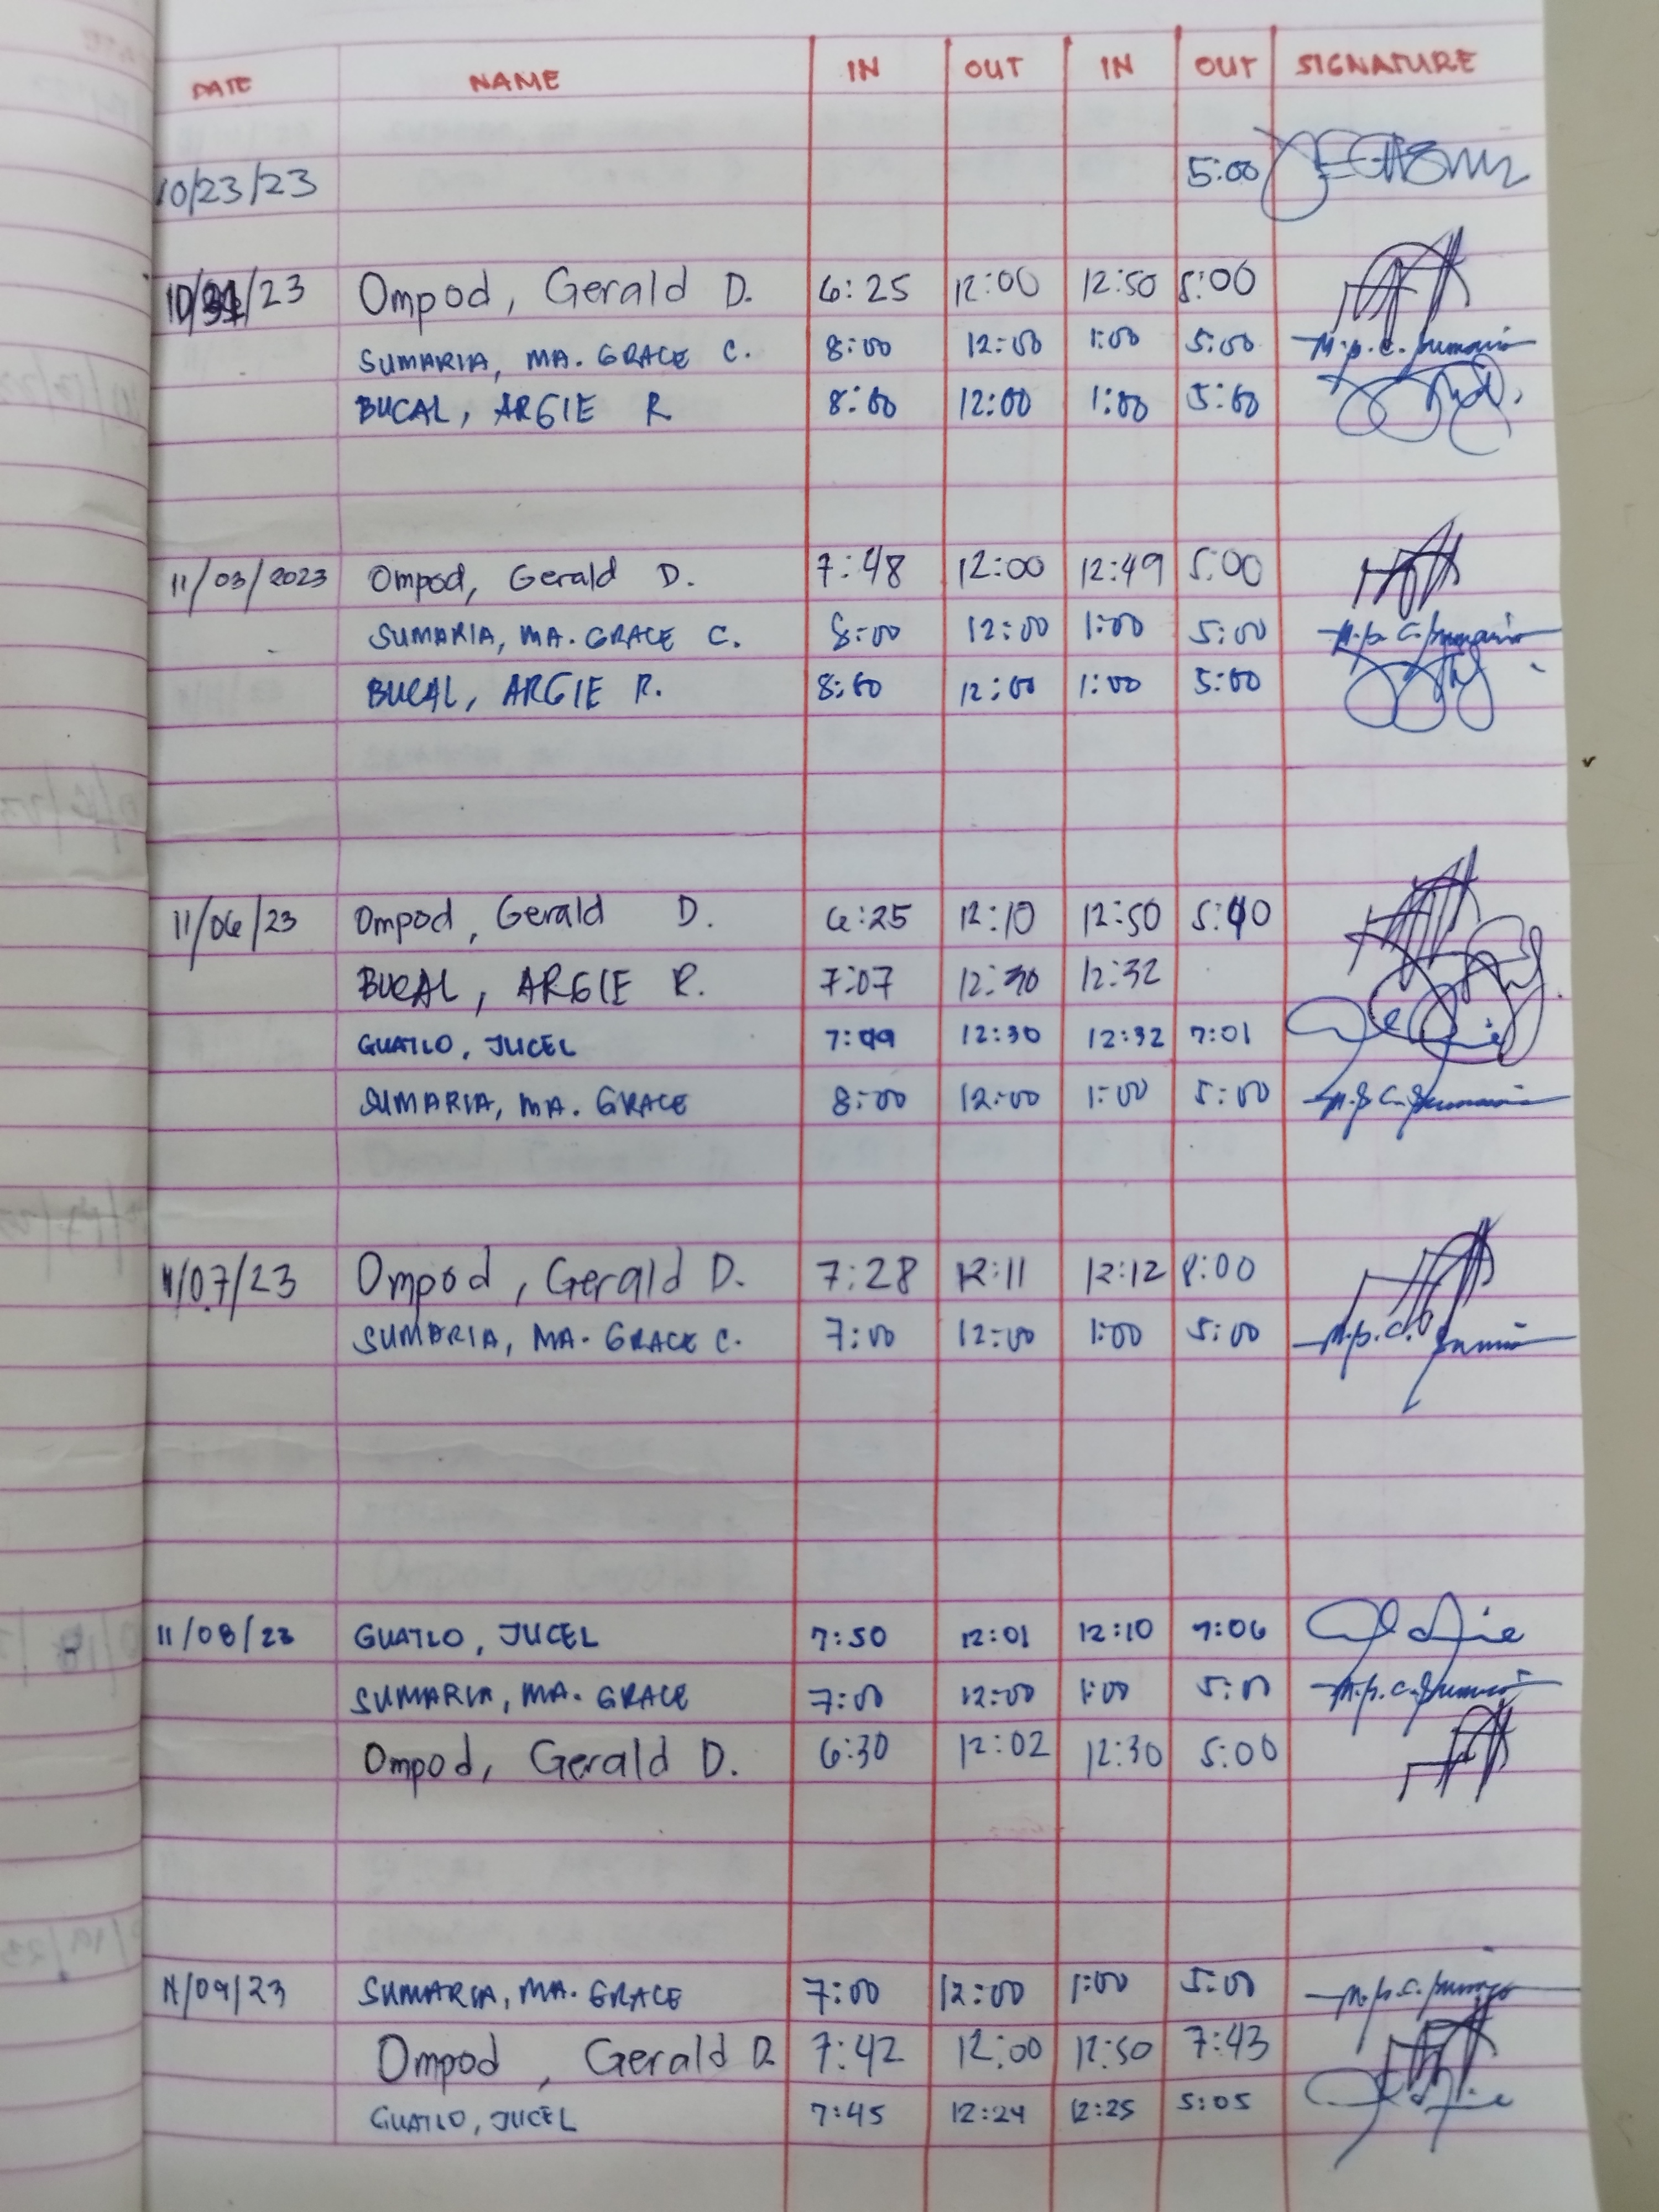 DATE NAME IN OUT IN OUT SIGNATURE
10/23/23 5:00
Ompod, Gerald D. 6:25 12:00 12:50 8:00
SUMARIA, MA. GRACE C. 8:00 12:00 1:00 5:00
BUCAL, ARGIE R 8:00 12:00 1:00 5:00
11/03/2023 Ompod, Gerald D. 7:48 12:00 12:49 5:00
SUMARIA, MA. GRACE C. 8:00 12:00 1:00 5:00
BUCAL, ARGIE R. 8:00 12:00 1:00 5:00
11/06/23 Ompod, Gerald D. 6:25 12:10 12:50
BUCAL, ARGIE R. 7:07 12:30 12:32
GUATLO, JUCEL 12:30 12:32 7:01
SUMARIA, MA. GRACE 8:00 12:00 1:00 5:00
11/07/23 Ompod, Gerald D. 7:28 12:11 12:12 8:00
SUMARIA, MA. GRACE C. 7:00 12:00 1:00 5:00
11/08/23 GUATLO, JUCEL 7:50 12:01 12:10 7:06
SUMARIA, MA. GRACE 7:00 12:00 1:00 5:00
Ompod, Gerald D. 6:30 12:02 12:30 5:00
11/09/23 SUMARIA, MA. GRACE 7:00 12:00 1:00 5:00
Ompod, Gerald D. 7:42 12:00 12:50 7:43
GUATLO, JUCEL 7:45 12:24 12:25 5:05